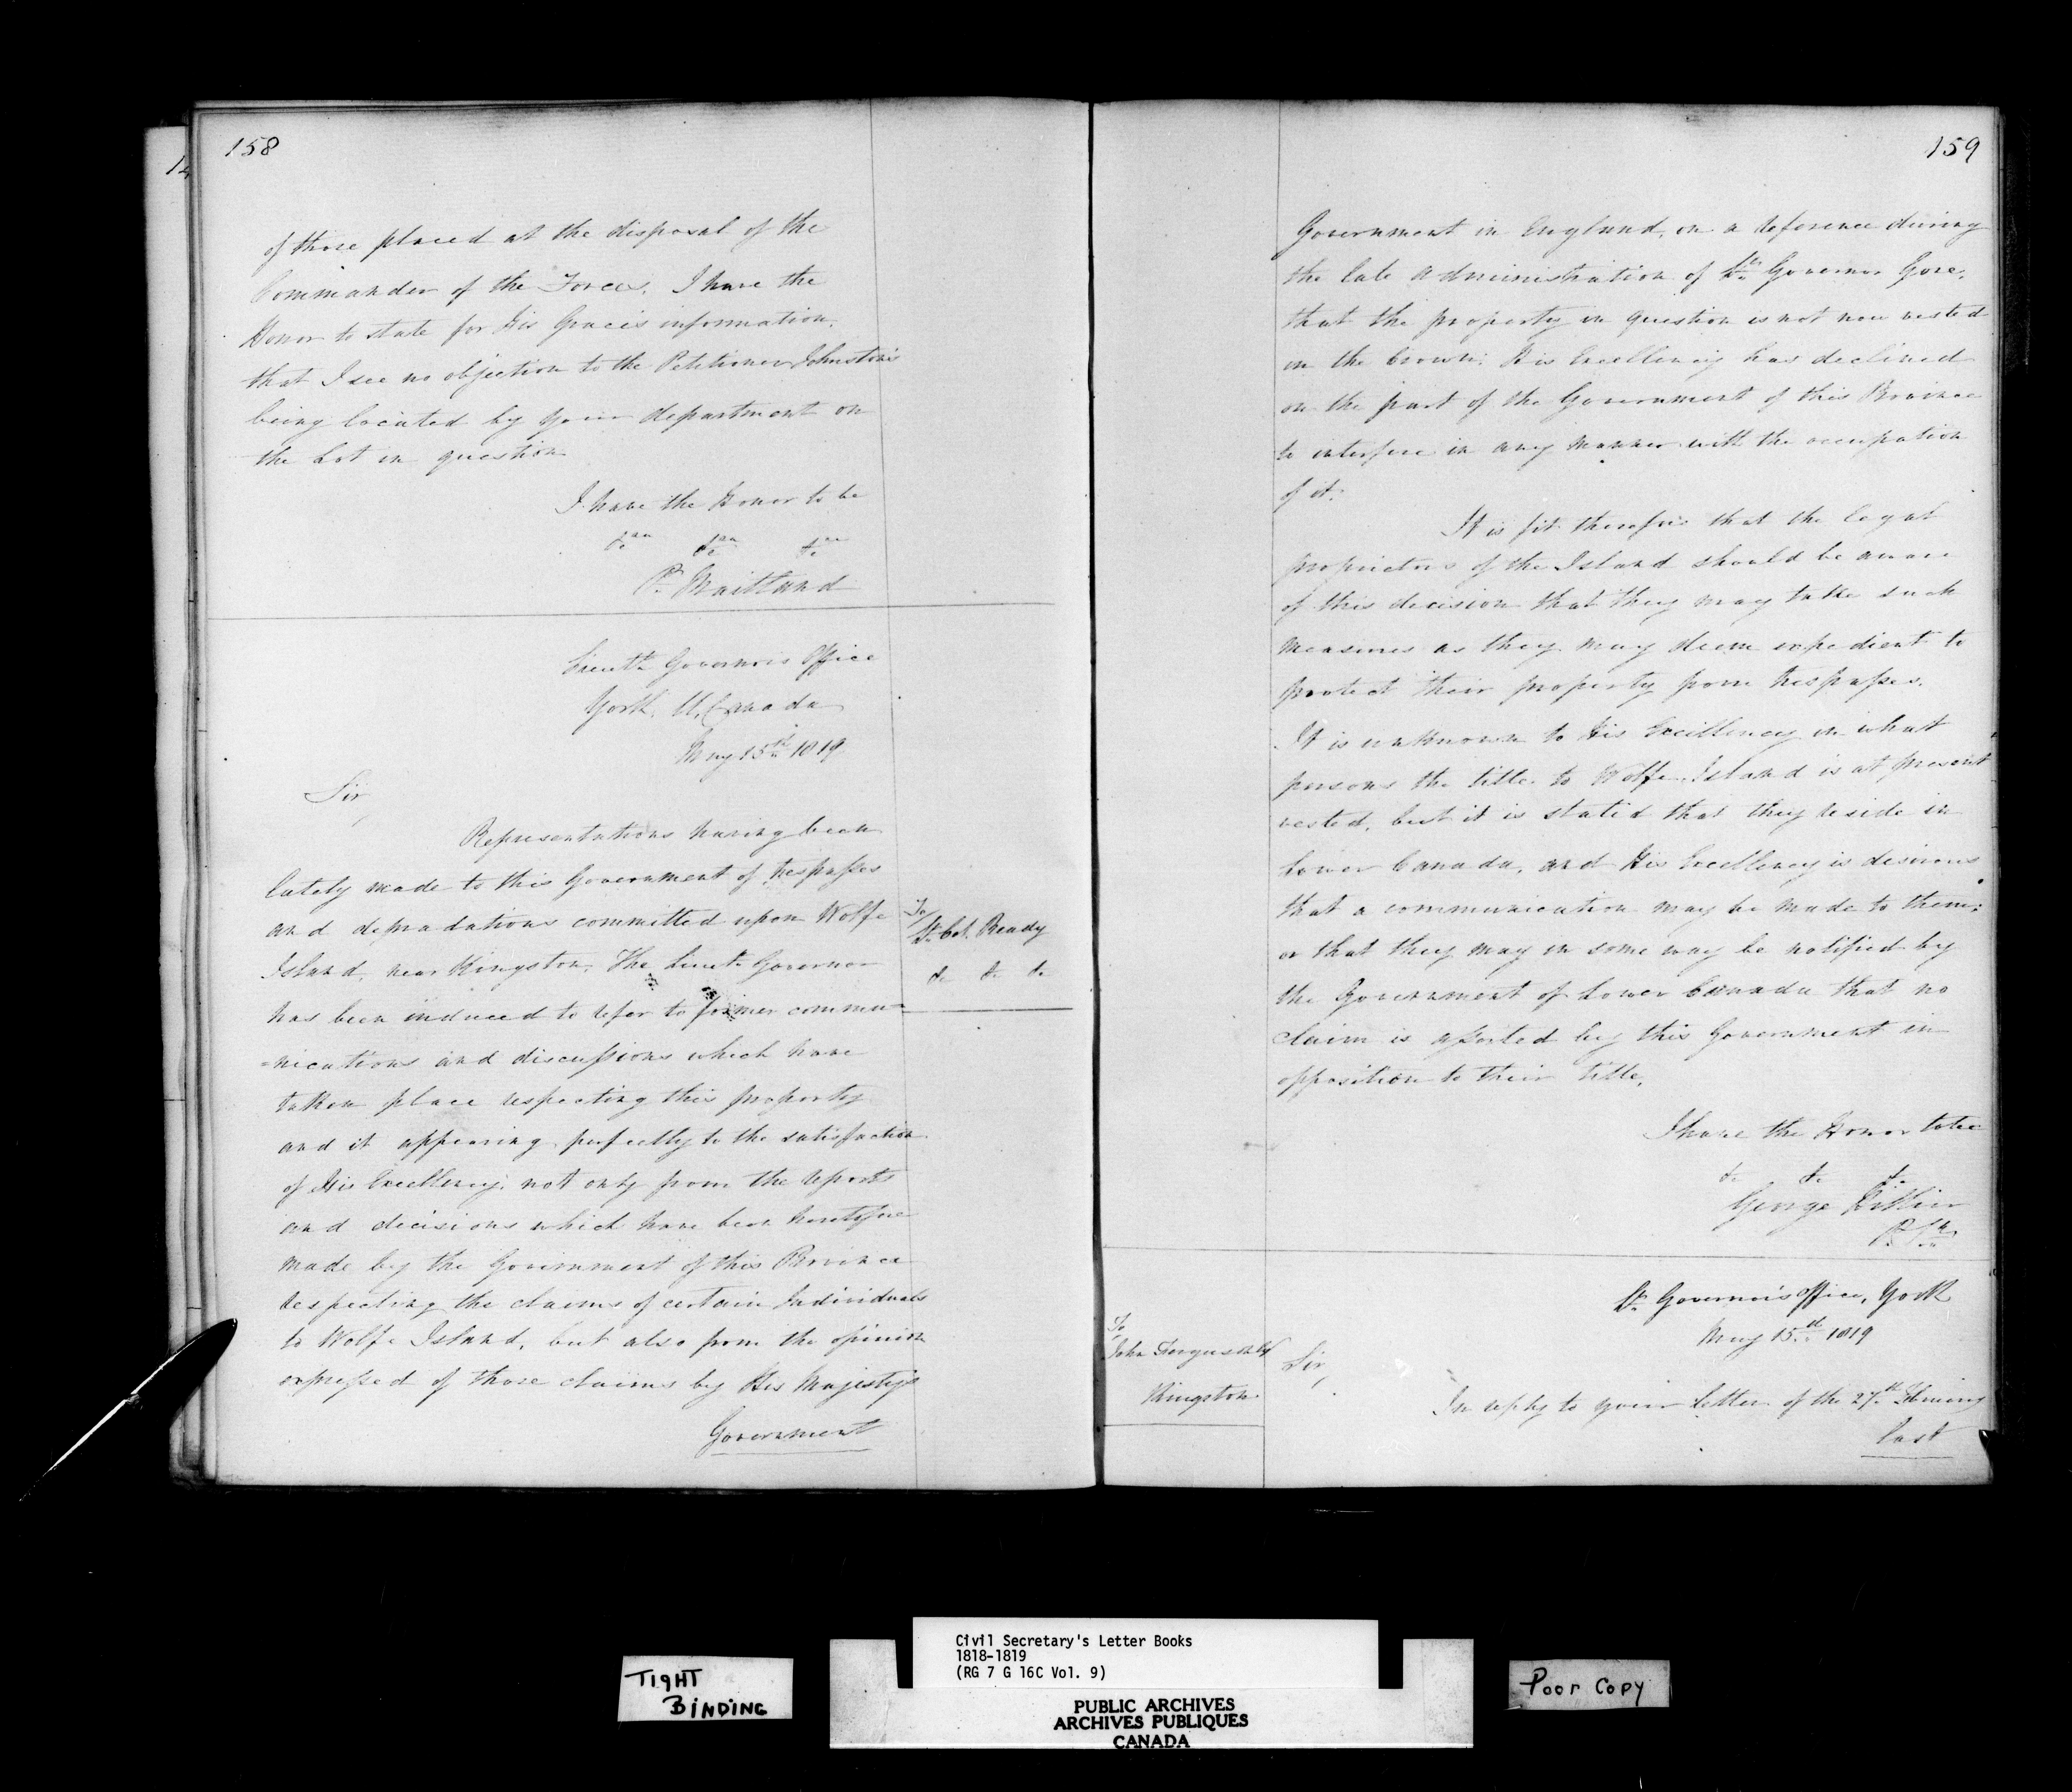 158
of those placed at the disposal of the
Commander of the Forces. I have the
Honor to state for His Grace's information,
that I see no objection to the Petitioner Johnston's
being located by your department on
the Lot in question
I have the Honor to be
&c &c &c
P. Maitland
Lieut Governor's Office
York, U. Canada
May 15th 1819
Sir,
Representations having been
lately made to this Government of trespasses
and depradations committed upon Wolfe
Island, near Kingston. The Lieut Governor
has been induced to refer to former commu=
=nications and discussions which have
taken place respecting this property
and it appearing perfectly to the satisfaction
of His Excellency, not only from the reports
and decisions which have been heretofore
made by the Government of this Province
respecting the claims of certain Individuals
to Wolfe Island, but also from the opinion
expressed of those claims by His Majesty's
Government
To/
Lt. Col. Ready
&c &c &c
159
Government in England, on a reference during
the late administration of Lt. Governor Gore,
that the property in question is not now vested
in the Crown: His Excellency has declined
on the part of the Government of this Province
to interfere in any manner with the occupation
of it.
It is fit therefore that the legal
proprietors of the Island should be aware
of this decision that they may take such
measures as they may deem expedient to
protect their property from trespasses.
It is unknown to His Excellency in what
persons the title to Wolfe Island is at present
vested, but it is stated that they reside in
Lower Canada, and His Excellency is desirous
that a communication may be made to them;
or that they may in some way be notified by
the Government of Lower Canada that no
claim is asserted by this Government in
opposition to their title.
I have the Honor to be
&c &c &c
George Hillier
P. S.
Lt. Governor's Office, York
May 15th 1819
To
John Ferguson
Kingston
Sir,
In reply to your Letter of the 27th
last
TIGHT
BINDING
Civil Secretary's Letter Books
1818-1819
(RG 7 G 16C Vol. 9)
PUBLIC ARCHIVES
ARCHIVES PUBLIQUES
CANADA
Poor Copy